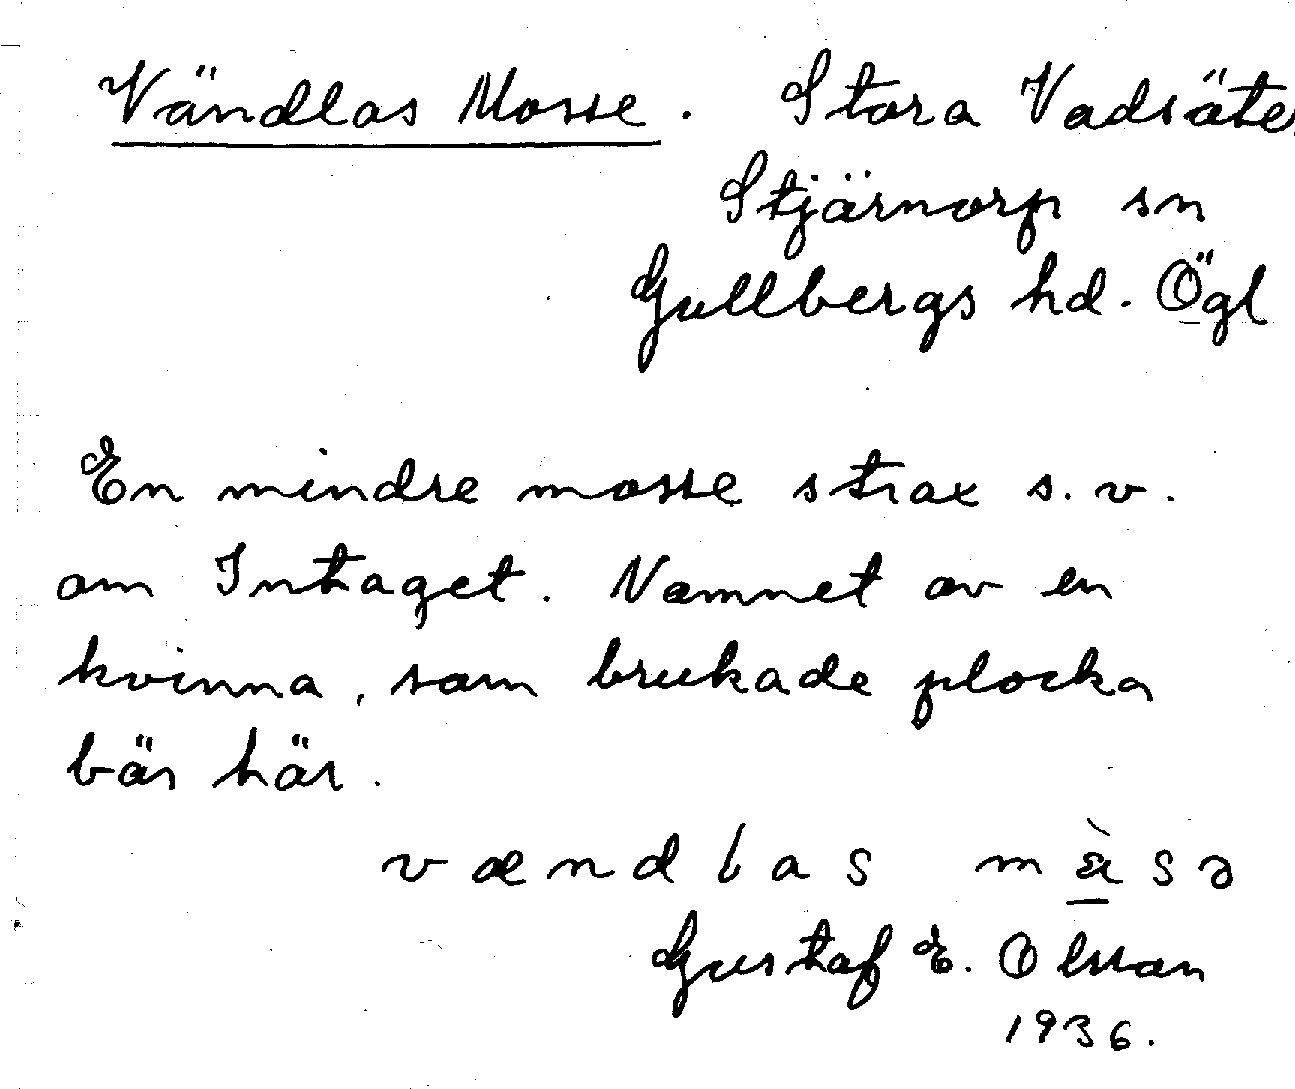 Vändlas Mosse. Stora Vadsäte
Stjärnorp sn
Gullbergs hd. Ögl
En mindre mosse strax s.v.
om Intaget. Namnet av en
kvinna, som brukade plocka
bär här.
vændlas
Gustaf E. Olsson
1936.